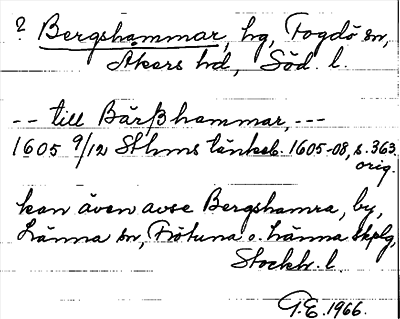 ? Bergshammar, hg, Fogdö sn,
Åkers hd, Söd. l.
-- till Bärßhammar, ---
1605 9/12 Sthms tänkeb. 1605-08, s. 363
orig.
kan även avse Bergshamra, by,
Länna sn, Frötuna o. Länna skplg,
Stockh. l.
P.E. 1966.